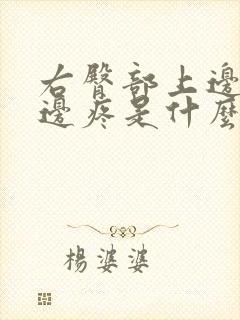 右臀部上邊
邊疼是什麼
楊婆婆